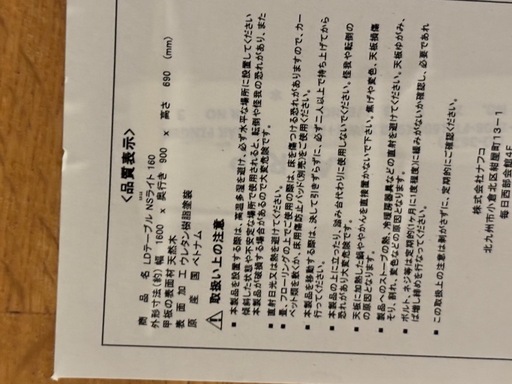 <品質表示>
商品名 LDテーブル NSライト 160
外形寸法(約) 幅 1600 × 奥行き 900 × 高さ 690 (mm)
甲板の表面材 天然木
表面加工 ウレタン樹脂塗装
原産国 ベトナム
取扱い上の注意
■ 本製品を設置する際は、高温多湿を避け、必ず水平な場所に設置してください
傾斜した状態や不安定な場所で使用されると、転倒や怪我の恐れがあり、また
本製品が破損する場合があるので大変危険です。
■ 直射日光又は熱を避けてください。
■ 畳、フローリングの上でご使用の際は、床を傷つける恐れがありますので、カー
ペット類を敷くか、床用傷防止パッド(別売)をご使用ください。
■ 本製品を移動する際は、決して引きずらずに、必ず二人以上で持ち上げてから
行ってください。
■ 本製品の上に立ったり、踏み台代わりに使用しないでください。怪我や転倒の
恐れがあり大変危険です。
■ 天板に加熱した鍋ややかんを直接置かないで下さい。焦げや変色、天板損傷
の原因となります。
■ 製品へのストーブの熱、冷暖房器具などの直射を避けてください。天板ゆがみ、
そり、割れ、変色などの原因となります。
■ ボルト、ネジ等は定期的(1ヶ月に1度程度)に緩みがないか確認し、必要であれ
ば増し締めを行なってください。
■ この取扱上の注意は剥がさずに、定期的にご確認ください。
株式会社ナフコ
北九州市小倉北区紺屋町13-1
毎日西部会館4F